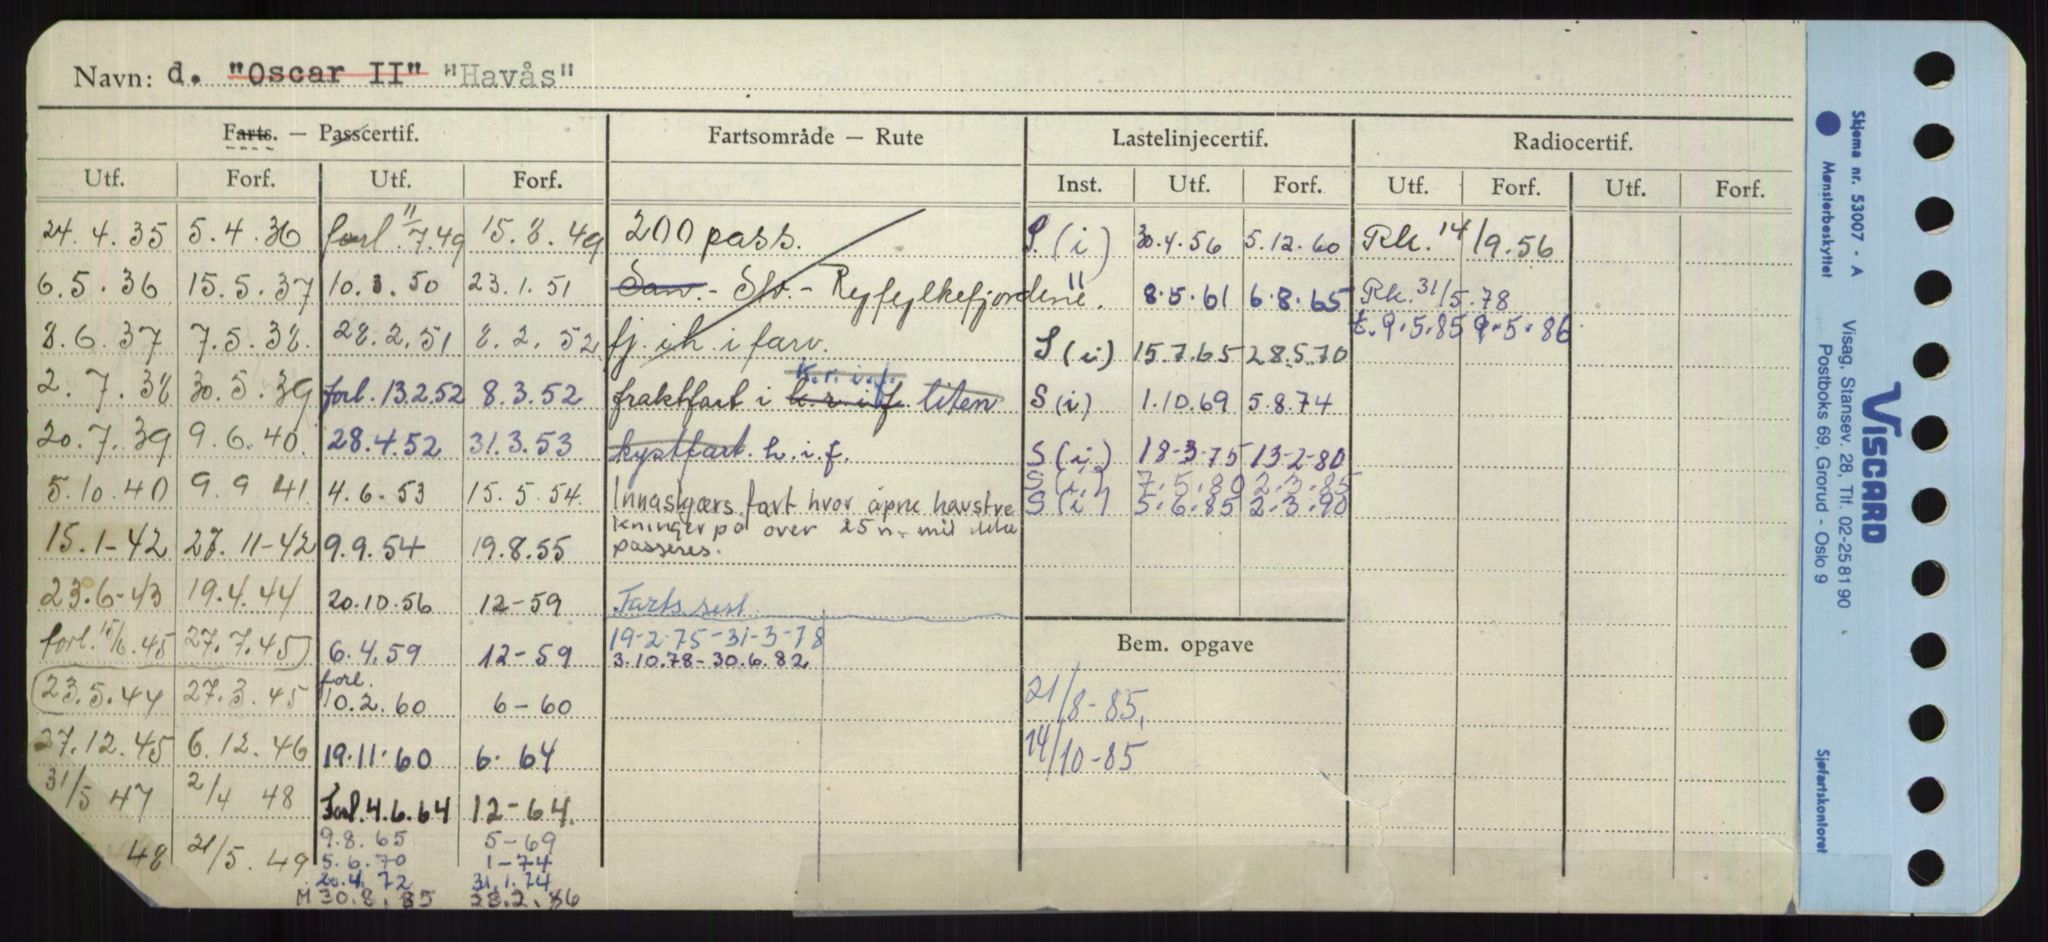 Navn: d. "Oscar II" "Havås"
Farts. — Passcertif.
Fartsområde — Rute
Lastelinjecertif.
Radiocertif.
Utf. Forf. Utf. Forf. Inst. Utf. Forf. Utf. Forf. Utf. Forf.
24. 4. 35 5. 4. 36 forl. 11/7.49 15. 8. 49 200 pass. S. (i) 30.4.56 5.12.60 Rk. 14/9.56
6. 5. 36 15. 5. 37 10. 3. 50 23. 1. 51 Sav. - Sto. - Ryfylkefjordene. " 8.5.61 6.8.65 Rk. 31/5.78
t. 9.5.85 9.5.86
8. 6. 37 7. 5. 38. 28. 2. 51 8. 2. 52 fj. i h. i farv. S (i) 15.7.65 28.5.70
K.r.i.f.
2. 7. 38 30. 5. 39 forl. 13.2.52 8. 3. 52 fraktfart i k.r.i.f liten S (i) 1.10.69 5.8.74
20. 7. 39 9. 6. 40. 28.4.52 31.3.53 kystfart. h. i. f. S (i) 18-3-75 13-2-80
S (i) 7.5.80 2.3.85
5. 10. 40 9. 9 41. 4. 6. 53 15. 5. 54. Innaskjærs fart hvor åpne havstre S (i) 5.6.85 2.3.90
kninger på over 25 n. mil ikke
15. 1-42 27. 11-42 9.9.54 19.8.55 passeres.
23.6-43 19.4.44 20.10.56 12-59 Farts.sest.
forl. 15/6.45 27.7.45 6.4.59 12-59 19-2-75-31-3-78
3.10.78-30.6.82
Bem. opgave
23.5.44 27.3.45 forl. 10.2.60 6-60 21/8-85.
27.12.45 6.12.46 19.11.60 6. 64 14/10-85
31/5 47 2/4 48 Forl. 4.6.64 12-64.
9.8.65 5-69
48 21/5. 49 5.6.70 1-74
20.4.72 31.1.74
M 30.8.85 28.2.86
Skjema nr. 53007 - A
Mønsterbeskyttet
VISCARD
Visag, Stansev. 28, Tlf. 02-25 81 90
Postboks 69, Grorud - Oslo 9
Sjøfartskontoret